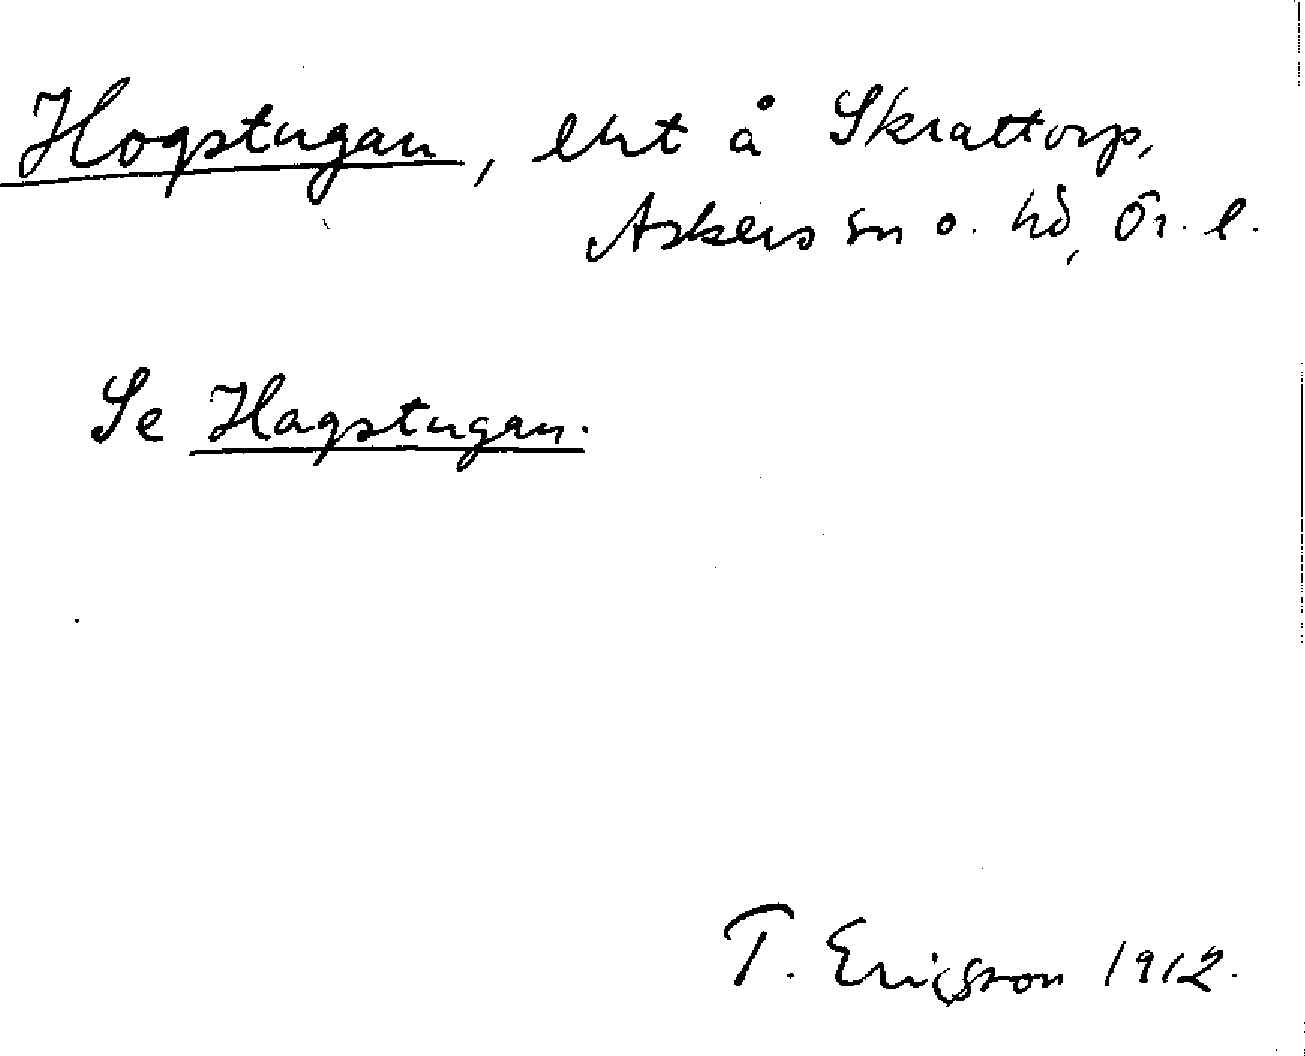 Hogstugan, lht å Skrattorp,
Askers sn o. hd, Ör. l.
Se Hagstugan.
T. Ericsson 1912.